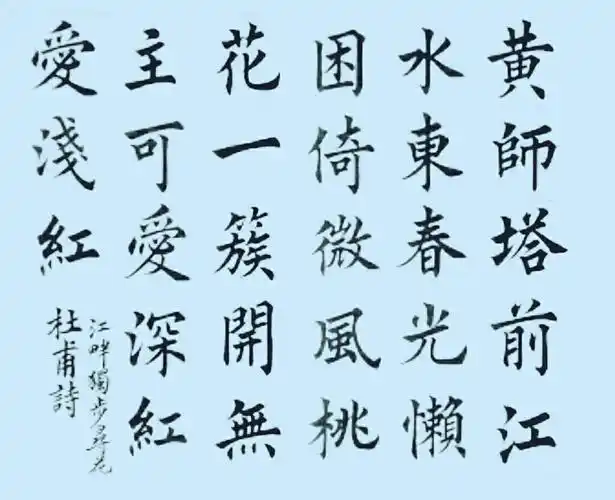 黄師塔前江
水東春光懶
困倚微風桃
花一簇開無
主可愛深紅
愛淺紅
江畔獨步尋花
杜甫詩